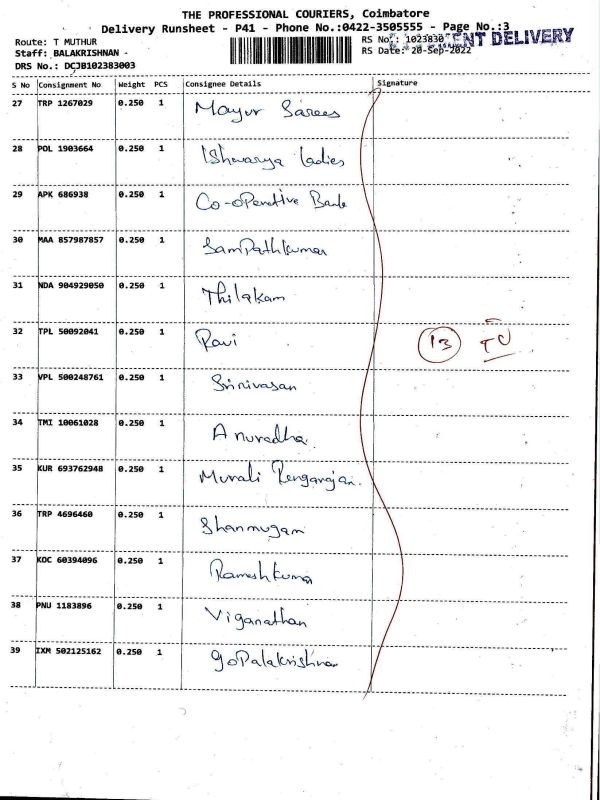 THE PROFESSIONAL COURIERS, Coimbatore
Delivery Runsheet - P41 - Phone No.:0422-3505555 - Page No.:3
Route: T MUTHUR
RS No.: 1023830
DELIVERY
Staff: BALAKRISHNAN -
RS Date: 20-Sep-2022
DRS No.: DCJB102383003
S No Consignment No Weight PCS Consignee Details Signature
27 TRP 1267029 0.250 1 Mayur Sarees
28 POL 1903664 0.250 1 Ishwarya Ladies
29 APK 686938 0.250 1 Co-operative Bank
30 MAA 857987857 0.250 1 SamPathkumar
31 NDA 904929050 0.250 1 Thilakam
32 TPL 50092041 0.250 1 Ravi 13
33 VPL 500248761 0.250 1 Srinivasan
34 TMI 10061028 0.250 1 Anuradha
35 KUR 693762948 0.250 1 Murali Rengarajan.
36 TRP 4696460 0.250 1 Shanmugam
37 KOC 60394096 0.250 1 Rameshkumar
38 PNU 1183896 0.250 1 Viganathan
39 IXM 502125162 0.250 1 GoPalakrishnan